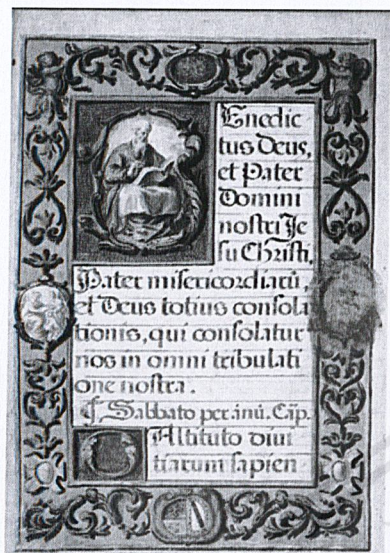 Enedic
tus Deus,
et Pater
Domini
nostri Je
su Christi,
Pater misericordiarū,
et Deus totius consola
tionis, qui consolatur
nos in omni tribulati
one nostra.
Sabbato per ānū. Cap.
O Altituto divi
tiarum sapien